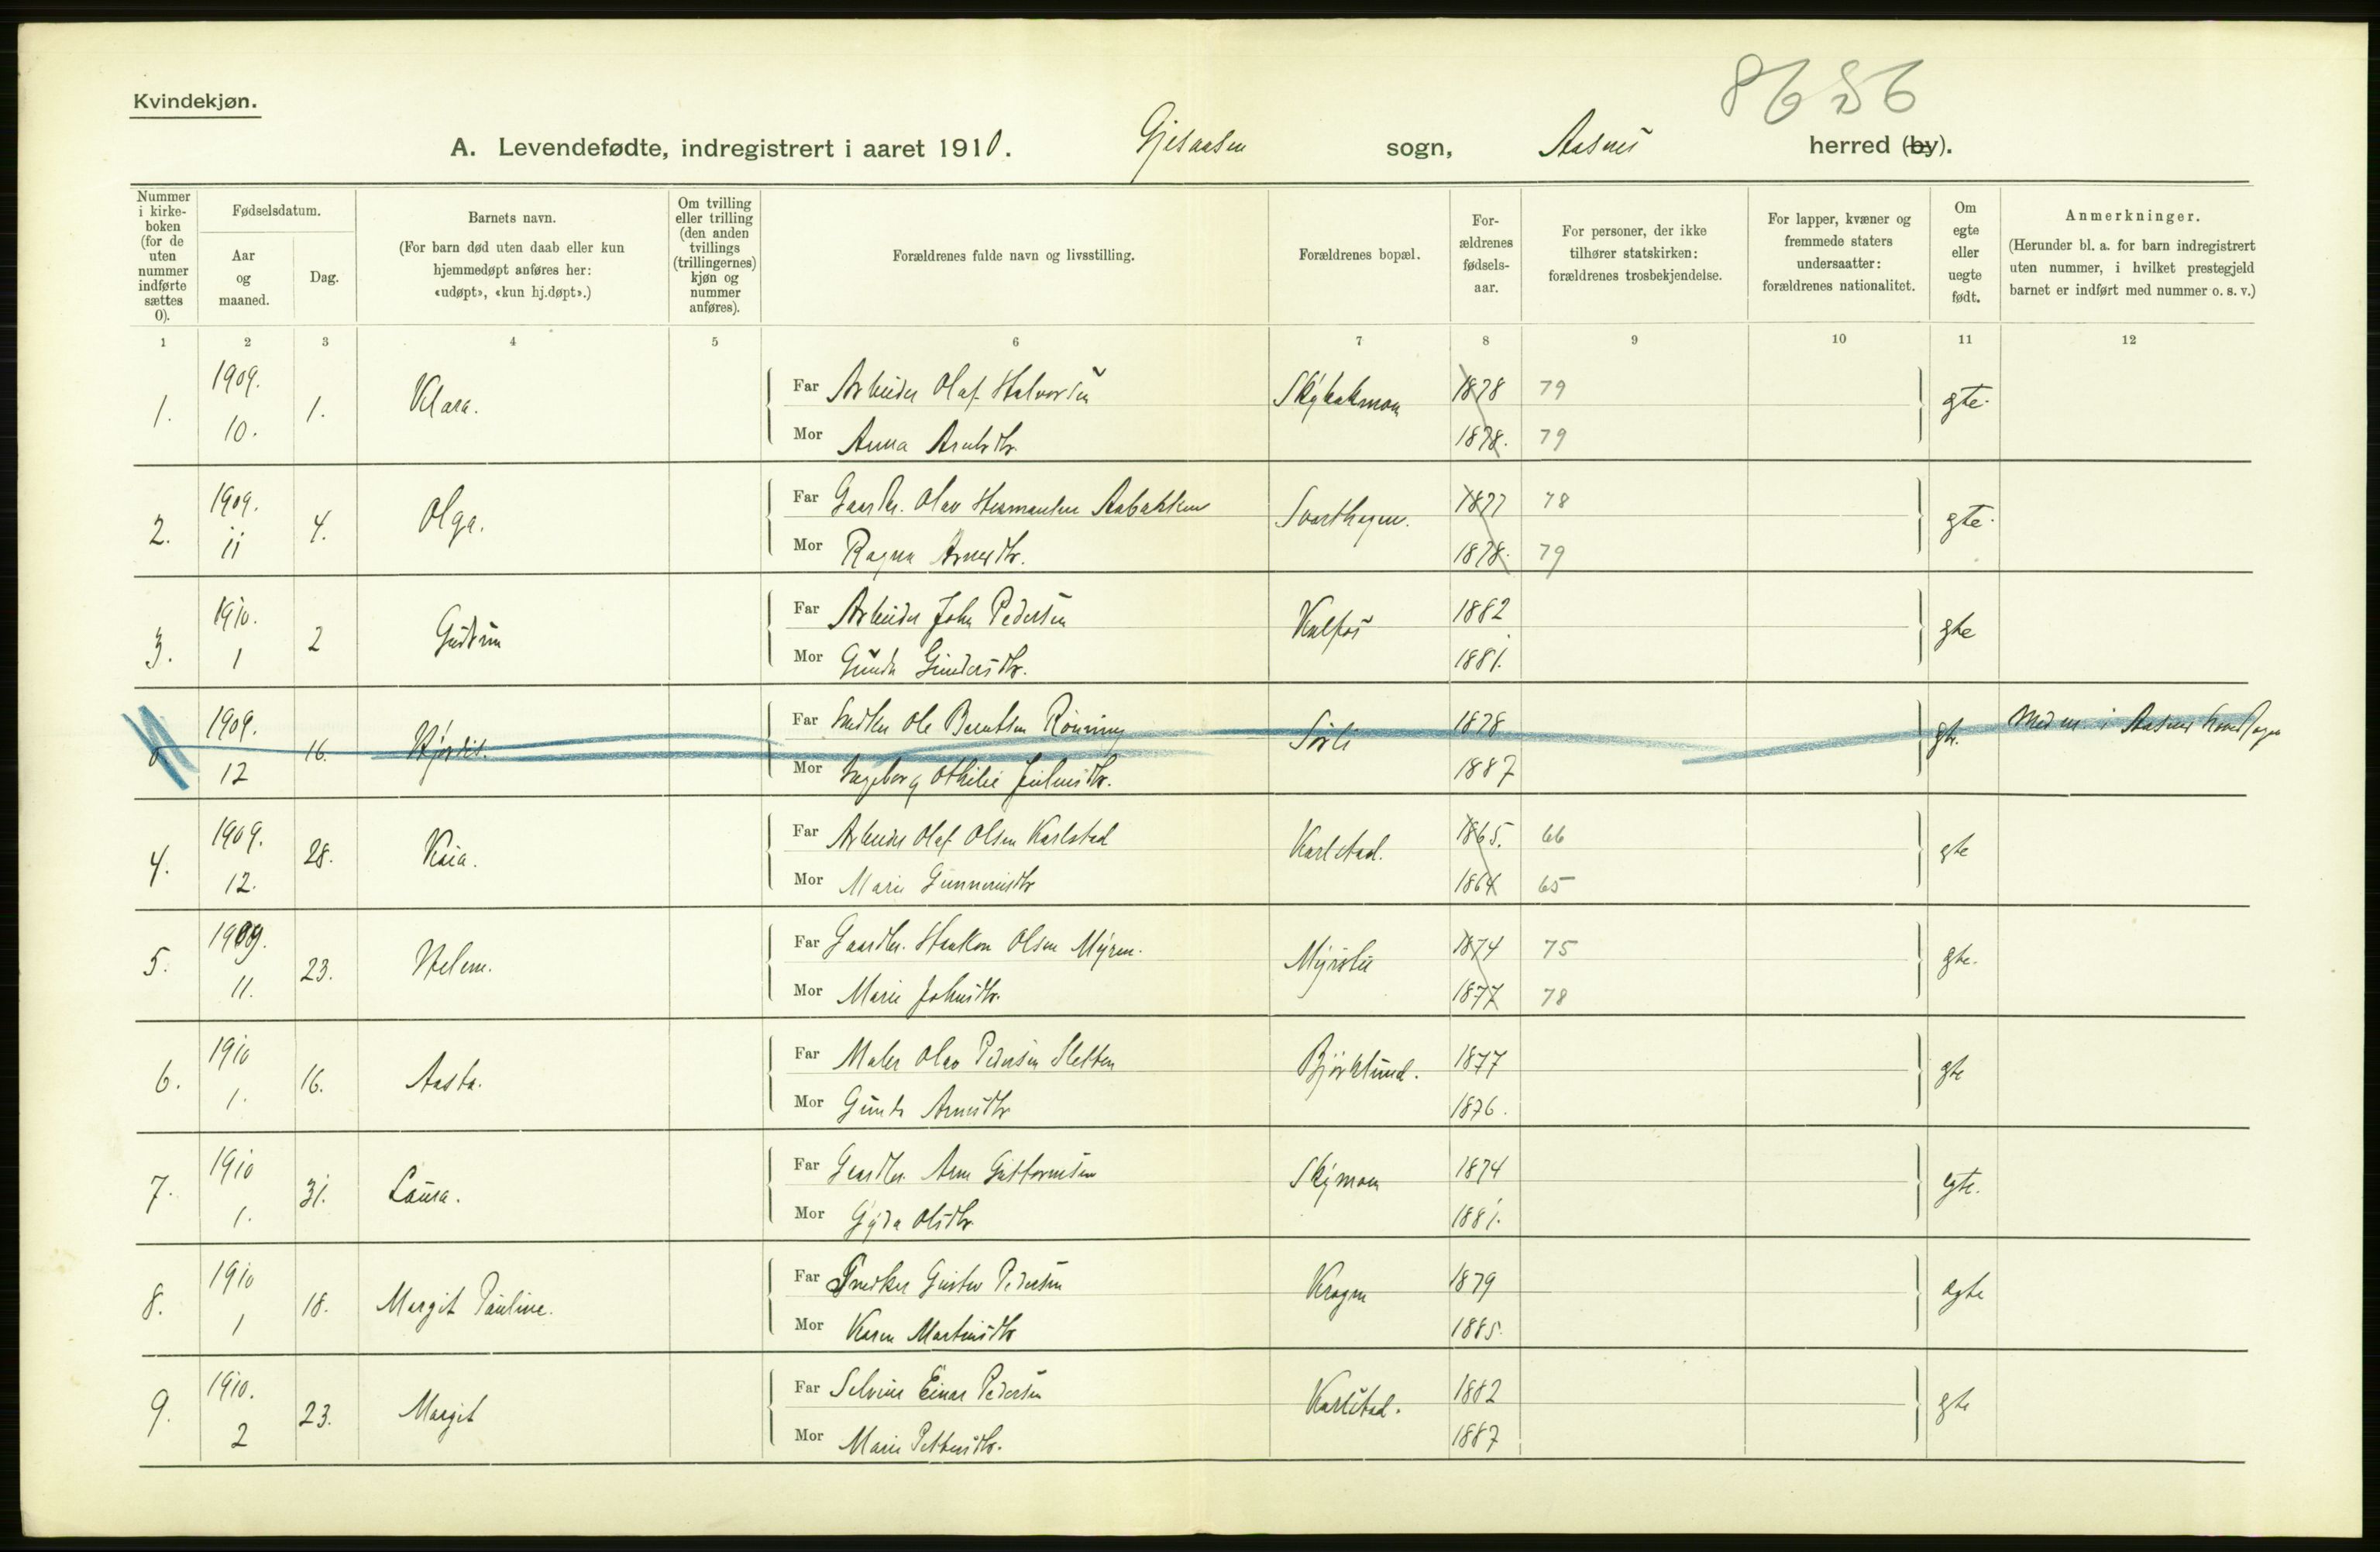 8656
Kvindekjøn.
A. Levendefødte, indregistrert i aaret 1910. Gjesaasen sogn, Aasnes herred (by).
Nummer i kirkeboken (for de uten nummer indførte sættes 0).
Fødselsdatum.
Aar og maaned.
Dag.
Barnets navn.
(For barn død uten daab eller kun hjemmedøpt anføres her: «udøpt», «kun hj.døpt».)
Om tvilling eller trilling (den anden tvillings (trillingernes) kjøn og nummer anføres).
Forældrenes fulde navn og livsstilling.
Forældrenes bopæl.
For-ældrenes fødsels-aar.
For personer, der ikke tilhører statskirken: forældrenes trosbekjendelse.
For lapper, kvæner og fremmede staters undersaatter: forældrenes nationalitet.
Om egte eller uegte født.
Anmerkninger.
(Herunder bl. a. for barn indregistrert uten nummer, i hvilket prestegjeld barnet er indført med nummer o. s. v.)
1 2 3 4 5 6 7 8 9 10 11 12
1. 1909. 10. 1. Klara. Far Arbeider Olaf Halvorsen 1878 79 gte.
Mor Anna 1878. 79
2. 1909. 11 4. Olga. Far Gaardbr. Olav Hermansen Aabakken Svarthagen. 1877 78 gte.
Mor Ragna Arnesdtr. 1878. 79
3. 1910. 1 2 Gudrun Far Arbeider John Pedersen Kalfos 1882 gte
Mor Gunda Gundersdtr. 1881.
0 1909. 12 16. Hjørdis. Far Ole Berntsen Rönning Sörli 1878 gte. Med nr i Aasnes
Mor Ingeborg Othilie Juliusdtr. 1887
4. 1909. 12. 28. Kaia. Far Arbeider Olaf Olsen Karlstad Karlstad. 1865. 66 gte
Mor Marie Gunnerusdtr 1864 65
5. 1909. 11. 23. Helene. Far Gaardbr. Haakon Olsen Myren. 1874 75 gte.
Mor Marie Johnsdtr. 1877 78
6. 1910 1. 16. Aasta. Far Maler Olav Pedersen Sletten Björklund. 1877 gte
Mor Gunda Arnesdtr 1876.
7. 1910 1. 31. Laura. Far Gaardbr. Arne Guttormsen Skymoen 1874 egte.
Mor Gyda Olsdtr. 1881.
8. 1910 1 18. Margit Pauline. Far Snedker Gustav Pedersen Kragen 1879 egte
Mor Karen Martinsdtr 1885.
9. 1910. 2 23. Margit Far Selveier Einar Pedersen Karlstad. 1882 gte
Mor Marie Pettersdtr. 1887